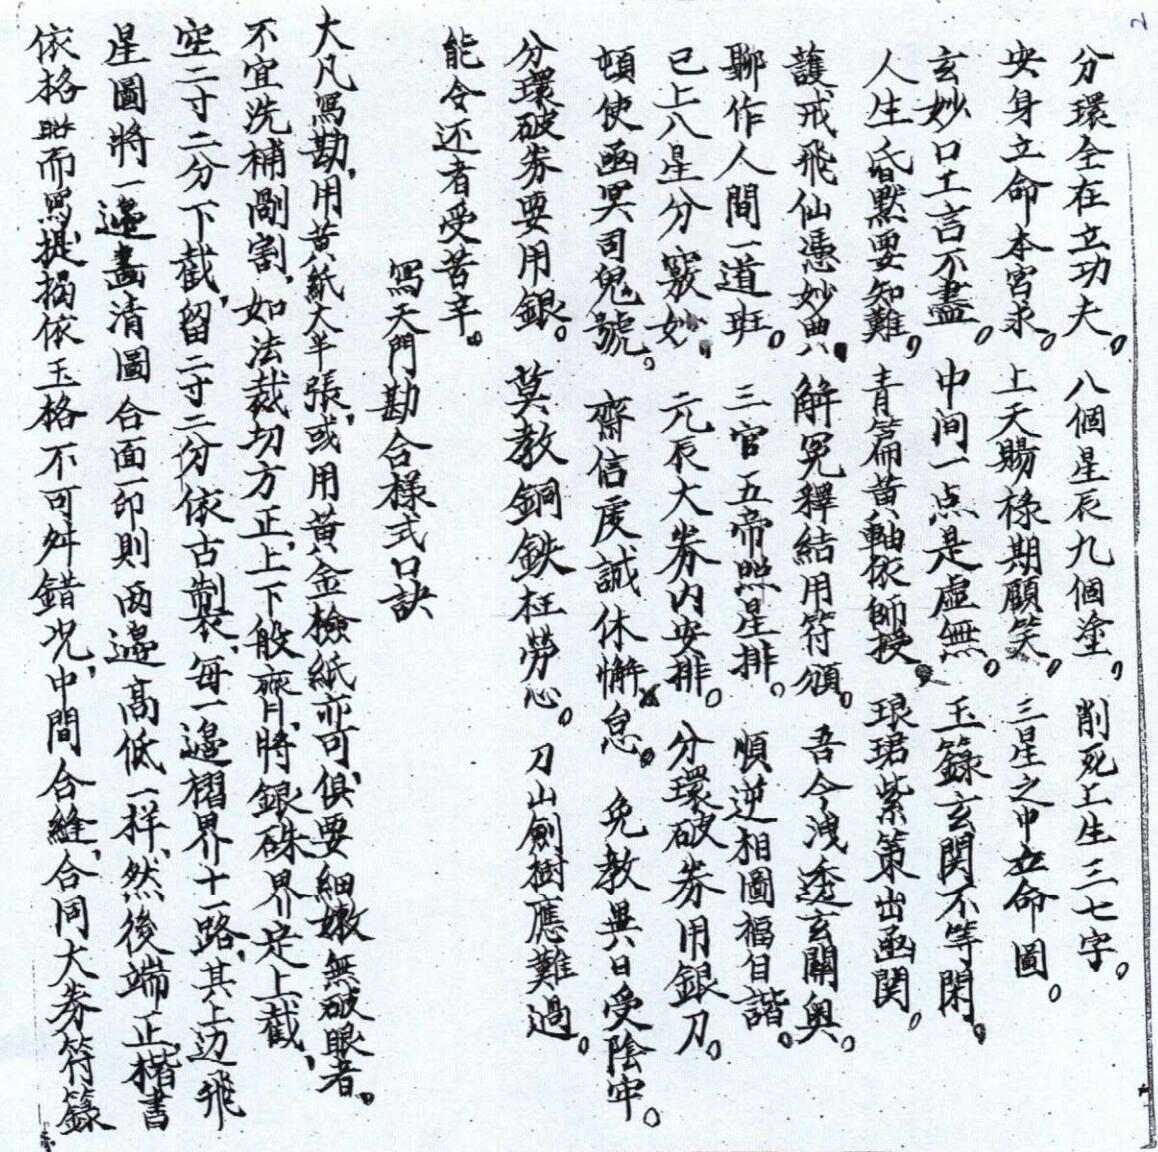 2
分環全在立功夫。八個星辰九個塗。削死上生三七字。
央身立命本宮求。上天賜祿期顧笑。三星之中立命圖。
玄妙口工言不盡。中间一点是虛無。玉籙玄関不等閑。
人生昏默要知難。青篇黃軸依師授。琅珺紫策出函関。
護戒飛仙憑妙典。解冤釋結用符頒。吾今洩透玄關奥。
聊作人間一道班。三官五帝照星排。順逆相圖福自諧。
已上八星分竅妙。元辰大券内安排。分環破券用銀刀。
頓使函冥司鬼號。齋信虔誠休懈怠。免教異日受陰牢。
分環破券要用銀。莫教銅鉄枉勞心。刀山劍樹應難過。
能令还者受苦辛。
寫天門勘合樣式口訣
大凡寫勘,用黃紙大半張,或用黃金檢紙亦可,俱要細嫩無破眼者。
不宜洗補剮割,如法裁切方正,上下般齊,將銀硃界定上截,
空二寸二分下截,留二寸二分依古製,每一邊褶界十一路,其上边飛
星圖將一邊畵清圖合面一印則两邉高低一样,然後端正楷書
依格照而寫提搨依玉格不可舛錯况,中間合縫,合同大券符籙